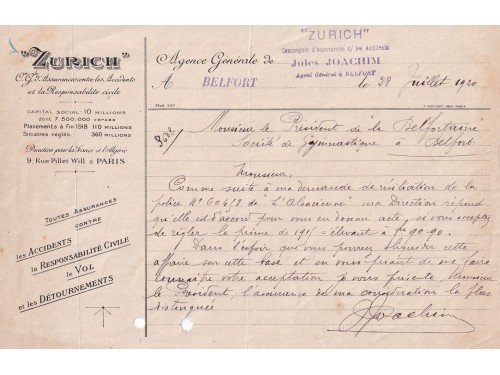 "ZURICH"
Cie Gle d'Assurances contre les Accidents
et la Responsabilité civile
CAPITAL SOCIAL: 10 MILLIONS
dont 7.500.000 versés
Placements à Fin 1918 110 MILLIONS
Sinistres réglés. 360 MILLIONS
Direction pour la France et l'Algérie
9, Rue Pillet Will à PARIS
TOUTES ASSURANCES
CONTRE
les ACCIDENTS
la RESPONSABILITÉ CIVILE
le VOL
et les DÉTOURNEMENTS
Agence Générale de
"ZURICH"
Compagnie d'Assurances c/ les Accidents
Jules JOACHIM
Agent Général à BELFORT
A BELFORT le 28 Juillet 1920
Mod. 247
Monsieur le Président de "la Belfortaine"
Société de Gymnastique à Belfort
Monsieur
Comme suite à ma demande de résiliation de la
police No 60418 de "L'Alsacienne" ma Direction répond
qu'elle est d'accord pour vous en donner acte, si vous acceptez
de régler la prime de 191 s'élevant à frs 90.90.
Dans l'espoir que vous pourrez solutionner cette
affaire sur cette base et en vous priant de me faire
connaître votre acceptation je vous présente, Monsieur
le Président, l'assurance de ma considération la plus
distinguée
Joachim